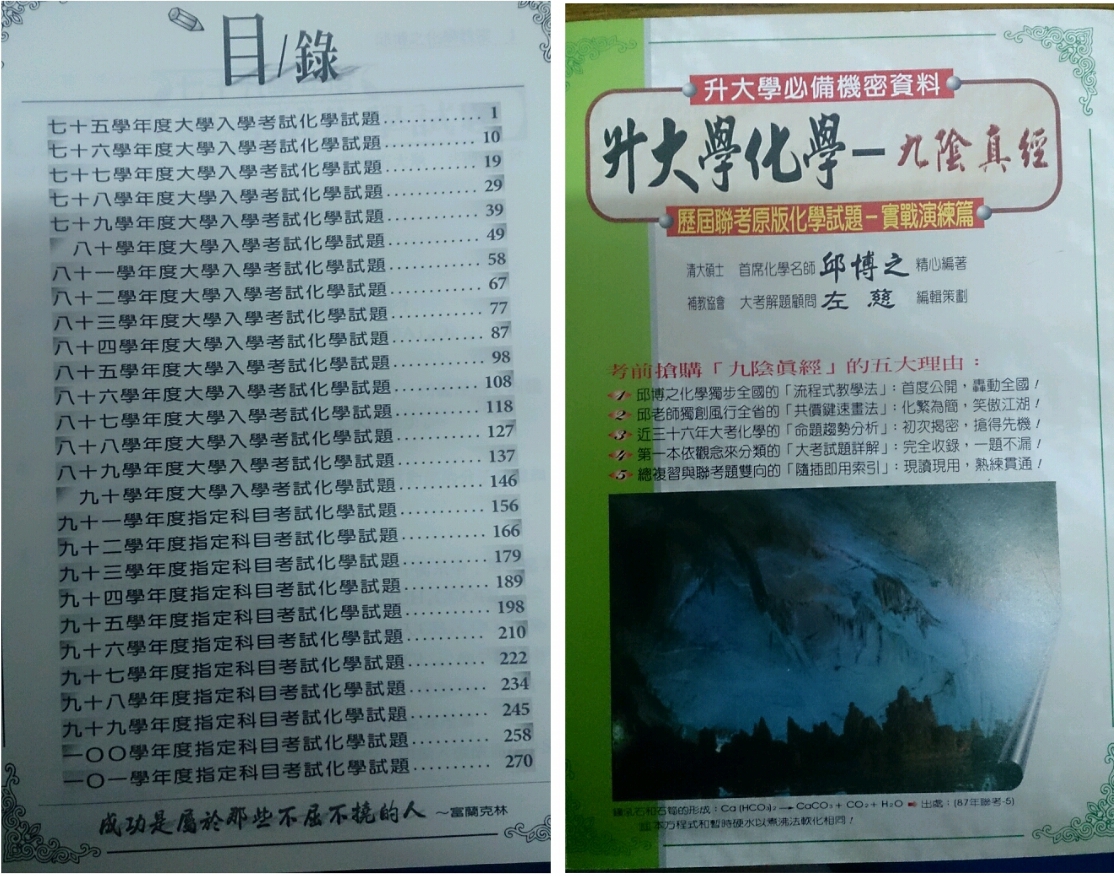 目/錄
七十五學年度大學入學考試化學試題............ 1
七十六學年度大學入學考試化學試題............ 10
七十七學年度大學入學考試化學試題............ 19
七十八學年度大學入學考試化學試題............ 29
七十九學年度大學入學考試化學試題............ 39
八十學年度大學入學考試化學試題............ 49
八十一學年度大學入學考試化學試題............ 58
八十二學年度大學入學考試化學試題............ 67
八十三學年度大學入學考試化學試題............ 77
八十四學年度大學入學考試化學試題............ 87
八十五學年度大學入學考試化學試題............ 98
八十六學年度大學入學考試化學試題............ 108
八十七學年度大學入學考試化學試題............ 118
八十八學年度大學入學考試化學試題............ 127
八十九學年度大學入學考試化學試題............ 137
九十學年度大學入學考試化學試題............ 146
九十一學年度指定科目考試化學試題.......... 156
九十二學年度指定科目考試化學試題.......... 166
九十三學年度指定科目考試化學試題.......... 179
九十四學年度指定科目考試化學試題.......... 189
九十五學年度指定科目考試化學試題.......... 198
九十六學年度指定科目考試化學試題.......... 210
九十七學年度指定科目考試化學試題.......... 222
九十八學年度指定科目考試化學試題.......... 234
九十九學年度指定科目考試化學試題.......... 245
一〇〇學年度指定科目考試化學試題.......... 258
一〇一學年度指定科目考試化學試題.......... 270
成功是屬於那些不屈不撓的人 ～富蘭克林
升大學必備機密資料
升大學化學－九陰真經
歷屆聯考原版化學試題－實戰演練篇
清大碩士 首席化學名師 邱博之 精心編著
補教協會 大考解題顧問 左慈 編輯策劃
考前搶購「九陰真經」的五大理由：
1 邱博之化學獨步全國的「流程式教學法」：首度公開，轟動全國！
2 邱老師獨創風行全省的「共價鍵速畫法」：化繁為簡，笑傲江湖！
3 近三十六年大考化學的「命題趨勢分析」：初次揭密，搶得先機！
4 第一本依觀念來分類的「大考試題詳解」：完全收錄，一題不漏！
5 總複習與聯考題雙向的「隨插即用索引」：現讀現用，熟練貫通！
鐘乳石和石筍的形成：Ca (HCO₃)₂ → CaCO₃ + CO₂ + H₂O 出處：(87年聯考-5)
本方程式和暫時硬水以煮沸法軟化相同！